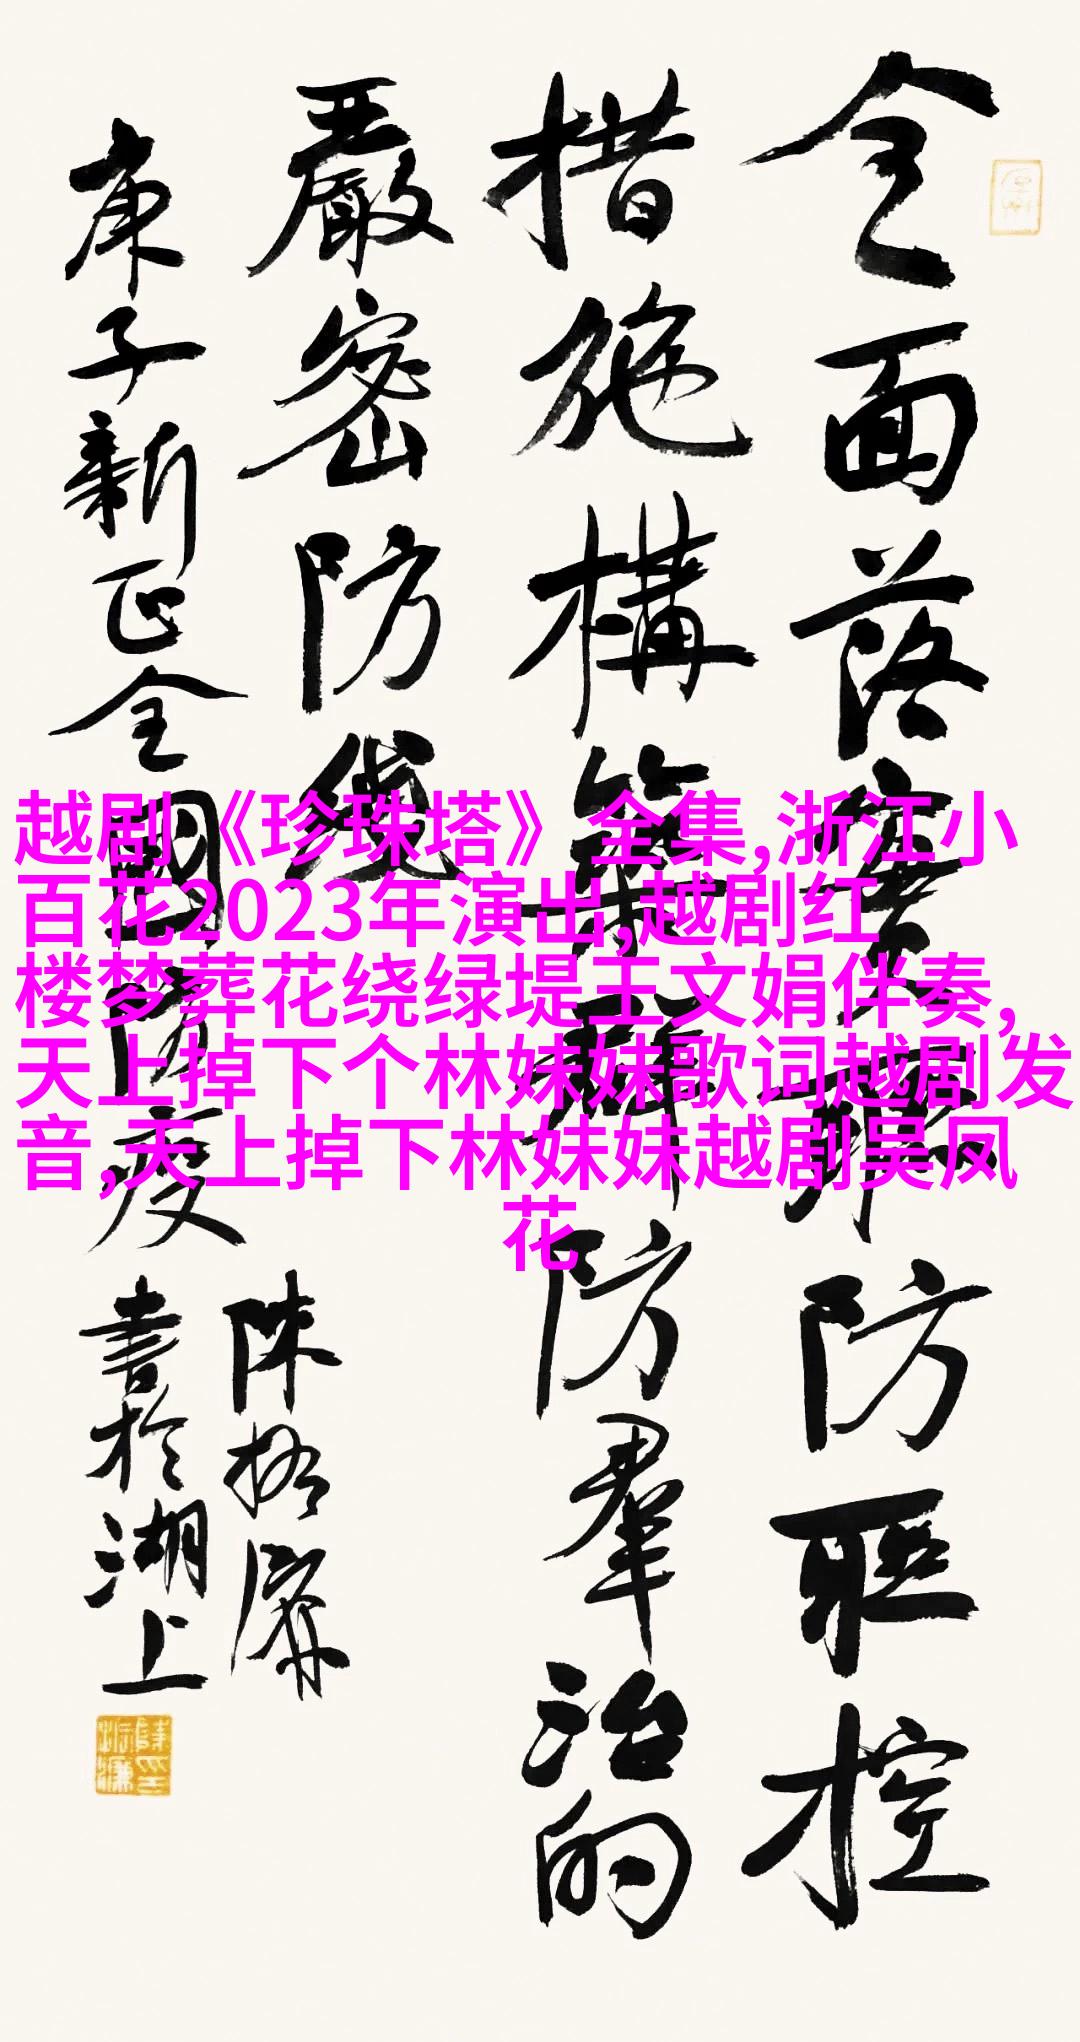 全面落實聯防聯控
措施構築羣防羣治的
嚴密防线
庚子新正全國防疫
陳振濂
書於湖上
越剧《珍珠塔》全集,浙江小
百花2023年演出,越剧红
楼梦葬花绕绿堤王文娟伴奏,
天上掉下个林妹妹歌词越剧发
音,天上掉下林妹妹越剧吴凤
花